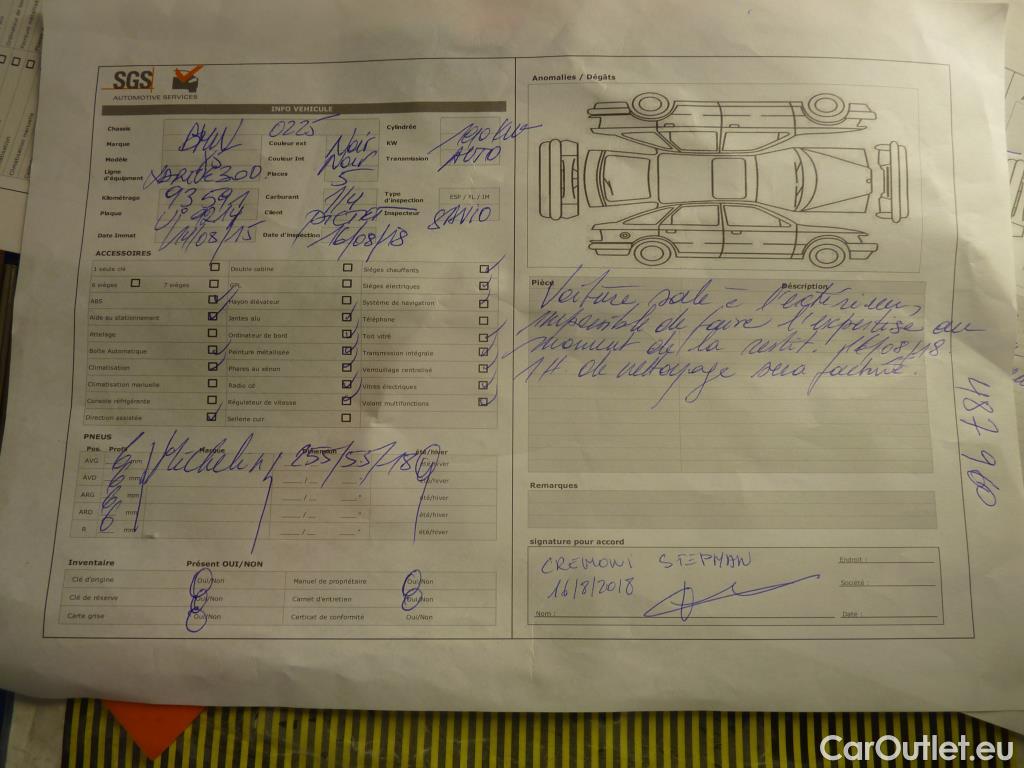 SGS
AUTOMOTIVE SERVICES
INFO VEHICULE
Chassis 0225 Cylindrée
Marque BMW Couleur ext Noir KW 190KW
Modèle Couleur Int Noir Transmission AUTO
Ligne d'équipement Places 5
Kilométrage Carburant 1/4 Type d'inspection ESP / XL / IM
Plaque Client Inspecteur
Date Immat 11/08/15 Date d'inspection 16/08/18
ACCESSOIRES
1 seule clé Double cabine Sièges chauffants
6 sièges 7 sièges GPL Sièges électriques
ABS Hayon élévateur Système de navigation
Aide au stationnement Jantes alu Téléphone
Attelage Ordinateur de bord Toit vitré
Boîte Automatique Peinture métalisée Transmission intégrale
Climatisation Phares au xénon Verrouillage centralisé
Climatisation manuelle Radio cd Vitres électriques
Console réfrigérante Régulateur de vitesse Volant multifonctions
Direction assistée Sellerie cuir
PNEUS
Pos. Profil Marque Dimension été/hiver
AVG 6 mm Michelin 255/55/18 été/hiver
AVD 6 mm __/__ __" été/hiver
ARG 6 mm __/__ __" été/hiver
ARD 6 mm __/__ __" été/hiver
R __ mm __/__ __" été/hiver
Inventaire Présent OUI/NON
Clé d'origine Oui/Non Manuel de propriétaire Oui/Non
Clé de réserve Oui/Non Carnet d'entretien Oui/Non
Carte grise Oui/Non Certicat de conformité Oui/Non
Anomalies / Dégâts
Pièce Déscription
Voiture sale à l'extérieur,
impossible de faire l'expertise au
moment de la restit. 16/08/18
1H de nettoyage sera facturé.
Remarques
signature pour accord
CREMONI STEPHAN
16/8/2018
Endroit :
Société :
Nom : Date :
487 910
CarOutlet.eu